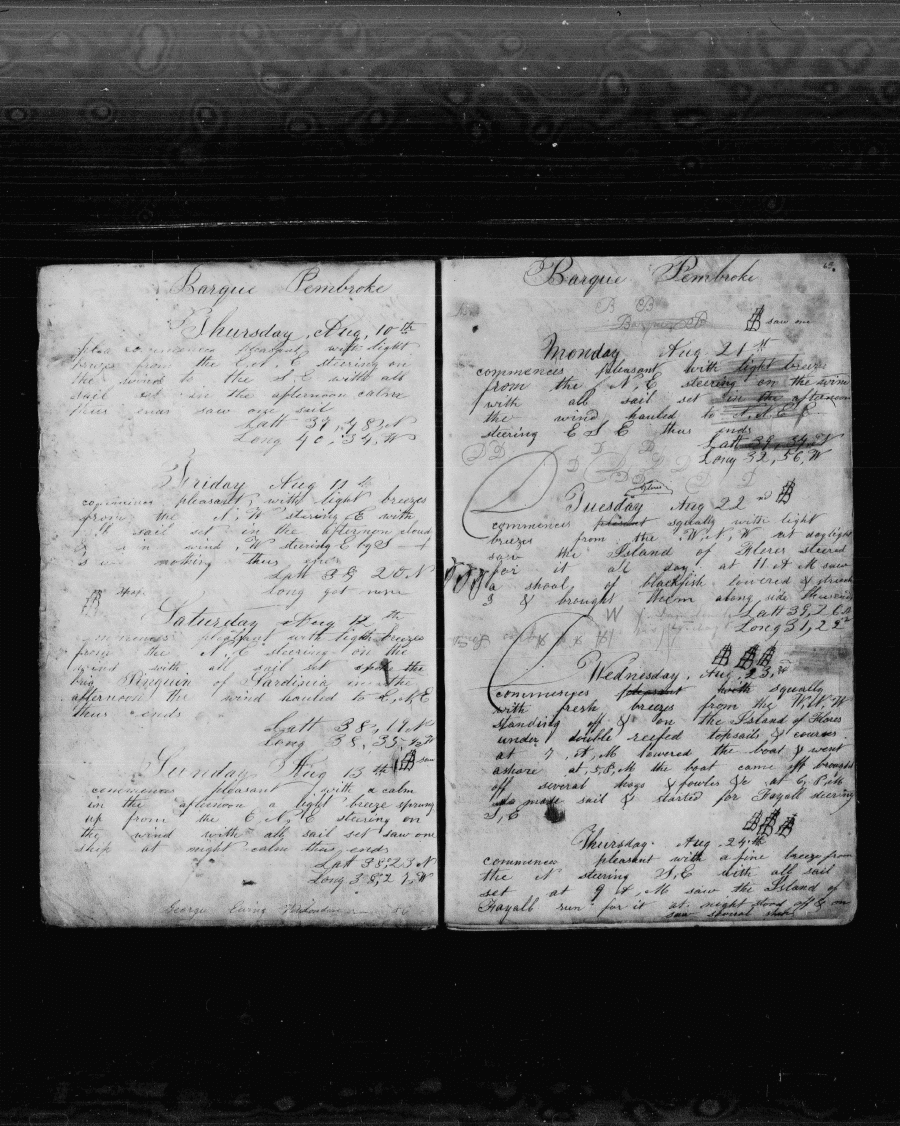 Barque Pembroke
Thursday, Aug, 10th
commences pleasant with light
breeze from the steering on
the wind to the S, E with all
sail set in the afternoon calm
thus ends saw one sail
Latt 39, 48 N
Long 40, 34, W
Friday Aug 11th
commences pleasant with light breezes
from the N, W stering E with
sail set in the afternon cloud
wind, W steering E by S
nothing thus
Latt 39 20 N
Long got none
Saturday Aug 12th
commences pleasant with light breezes
from the N, E steering on the
wind with all sail set the
brig Pinguin of Sardinia in the
afternoon the wind hauled to E, N, E
thus ends
Latt 38, 19 N
Long 38, 35, W
saw
Sunday Aug 13th
commences pleasant with a calm
in the afternoon a light breeze sprung
up from the E N, E steering on
the wind with all sail set saw one
ship at night calm thus ends
Latt 38, 23 N
Long 38, 27, W
George
Barque Pembroke
B B
saw one
Monday Aug 21st
commences pleasant with light breeze
from the N, E steering on the wind
with all sail set in the afternoon
the wind hauled to
steering E S E thus ends
Latt 39, 34, N
Long 32, 56, W
D D D
Tuesday Aug 22nd
commences pleasant squally with light
breezes from the W, N, W at daylight
saw the Island of Flores steered
for it all day at 11 A M saw
a shoal of blackfish lowered & struck
3 & brought them along side thus ends
Latt 39, 26 N
Long 31, 22
Wednesday, Aug, 23
commences pleasant with squally
with fresh breezes from the W, N, W
standing off & on the Island of Flores
under double reefed topsails & courses
at 7 A, M lowered the boat & went
ashore at 5 P, M the boat came off brought
off several hogs & fowles &c at 6 P, M
made sail & started for Fayall steering
S, E
Thursday Aug 24th
commences pleasant with a fine breeze from
the N steering S, E with all sail
set at 9 A, M saw the Island of
Fayall run for it at night stood off & on
saw several